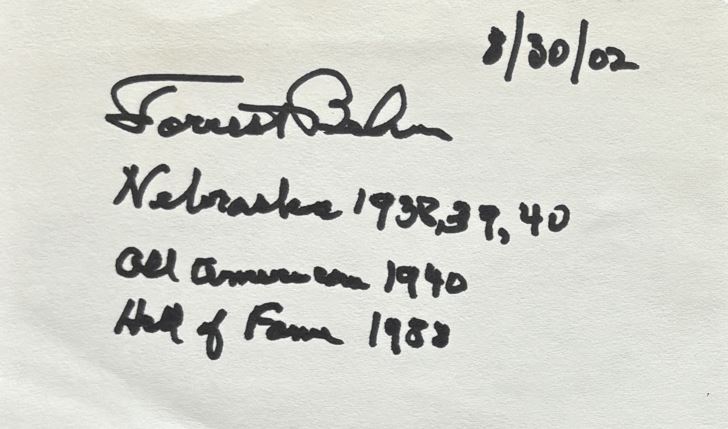 8/30/02
Forrest Behm
Nebraska 1938,39,40
All American 1940
Hall of Fame 1988